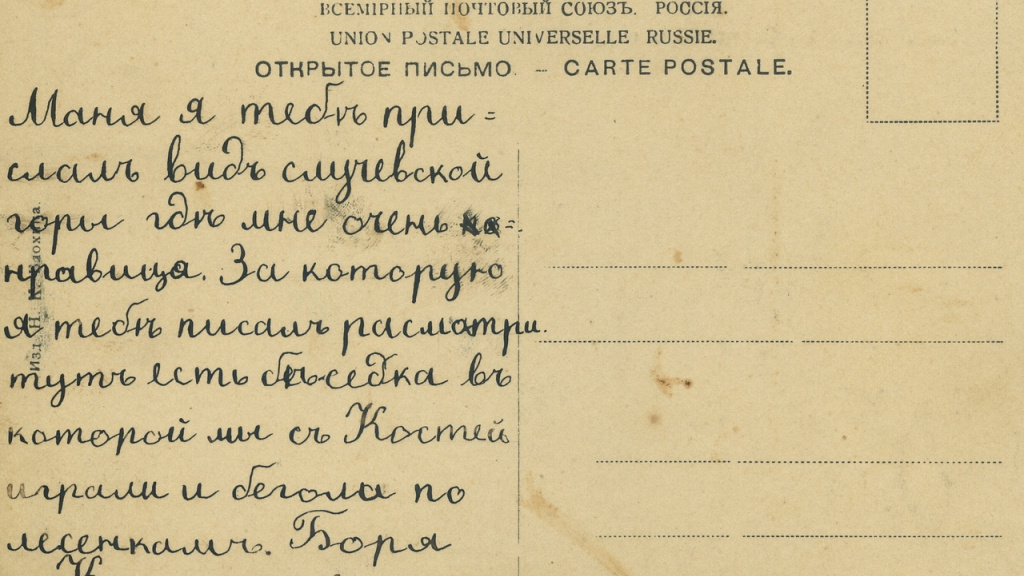 ВСЕМІРНЫЙ ПОЧТОВЫЙ СОЮЗЪ. РОССІЯ.
UNION POSTALE UNIVERSELLE RUSSIE.
ОТКРЫТОЕ ПИСЬМО. – CARTE POSTALE.
Маня я тебѣ при=
слалъ видъ случевской
горы гдѣ мне очень
нравица. За которую
я тебѣ писалъ расмотри.
тутъ есть бѣседка въ
которой мы съ Костей
играли и бегола по
лесенкамъ. Боря
Изд. Н.